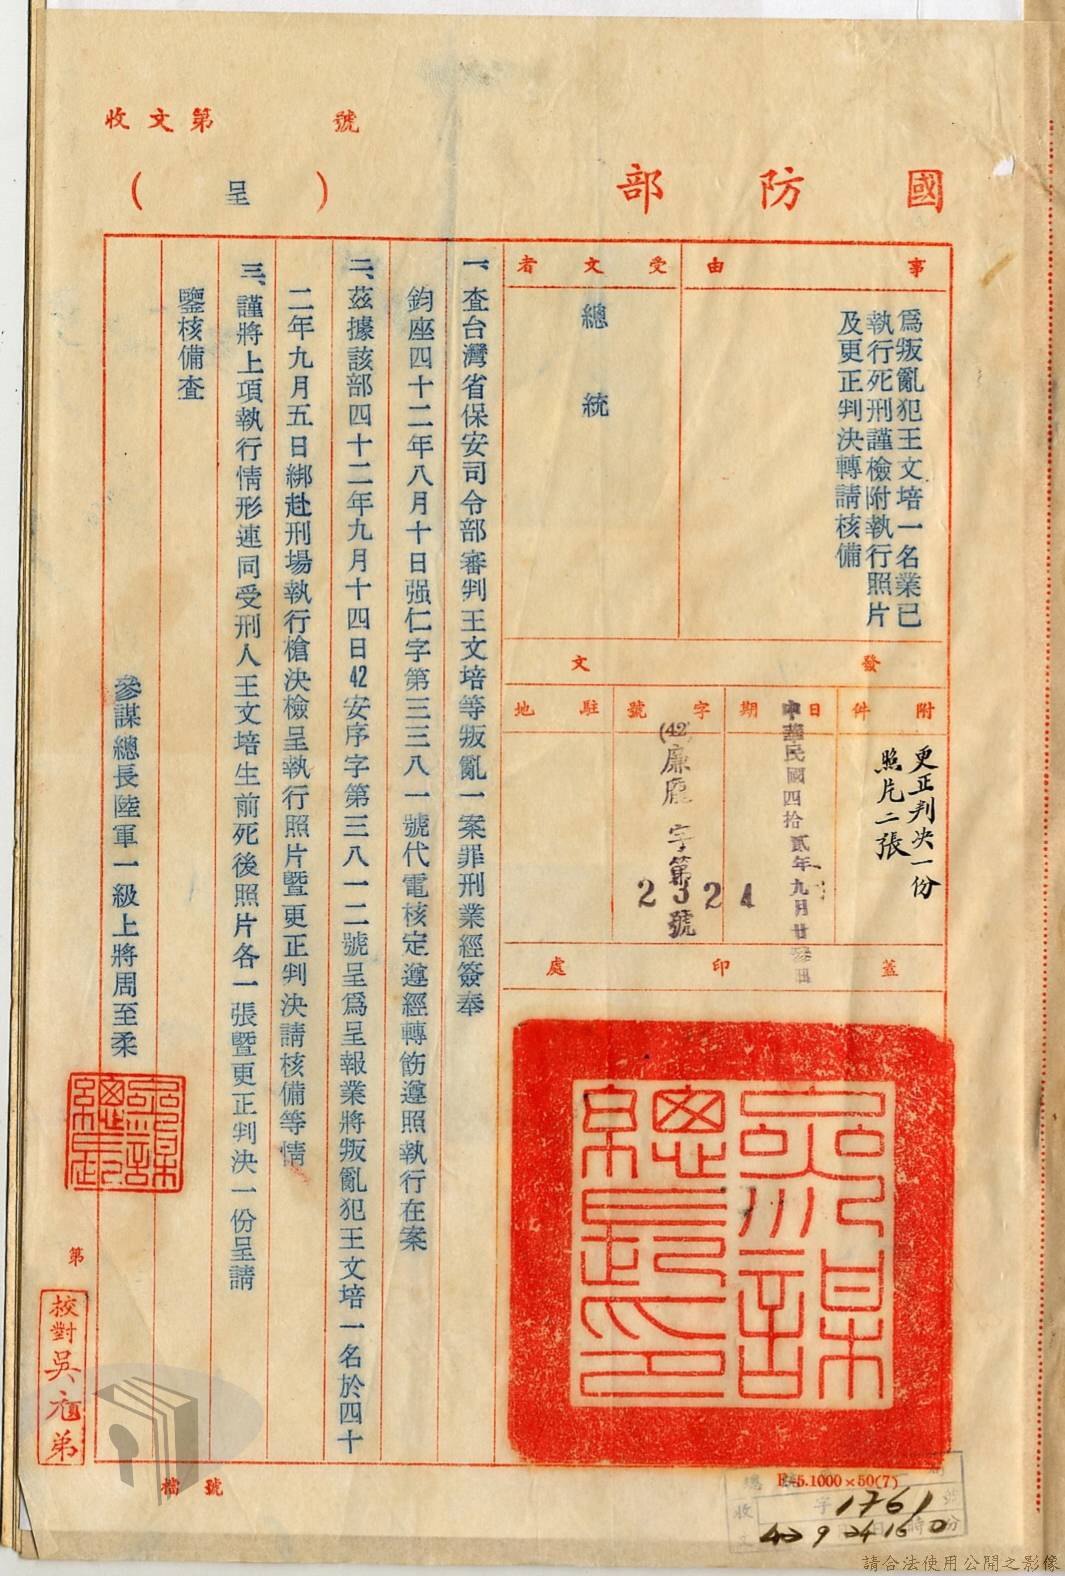 國防部
(呈)
收文第 號
事由
為叛亂犯王文培一名業已
執行死刑謹檢附執行照片
及更正判決轉請核備
受文者
總統
發文
附件
更正判决一份
照片二張
日期
中華民國四拾貳年九月廿 日
字號
(42)廉龐字第2324號
駐地
蓋印處
參謀總長之印
一、查台灣省保安司令部審判王文培等叛亂一案罪刑業經簽奉
鈞座四十二年八月十日强仁字第三三八一號代電核定遵經轉飭遵照執行在案
二、茲據該部四十二年九月十四日42安序字第三八一二號呈為呈報業將叛亂犯王文培一名於四十
二年九月五日綁赴刑場執行槍決檢呈執行照片暨更正判決請核備等情
三、謹將上項執行情形連同受刑人王文培生前死後照片各一張暨更正判決一份呈請
鑒核備查
參謀總長陸軍一級上將周至柔
參謀總長
第
校對吳 弟
檔號
E-5.1000×50(7)
收文 字1761號
42 9 24 日 16 時 0 分
請合法使用公開之影像